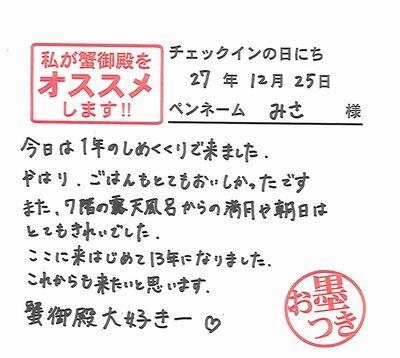 私が蟹御殿を
オススメ
します!!
チェックインの日にち
27 年 12月 25日
ペンネーム みさ 様
今日は1年のしめくくりで来ました.
やはり、ごはんもとてもおいしかったです
また、7階の露天風呂からの満月や朝日は
とてもきれいでした.
ここに来はじめて13年になりました.
これからも来たいと思います.
蟹御殿大好きー♡
お墨つき